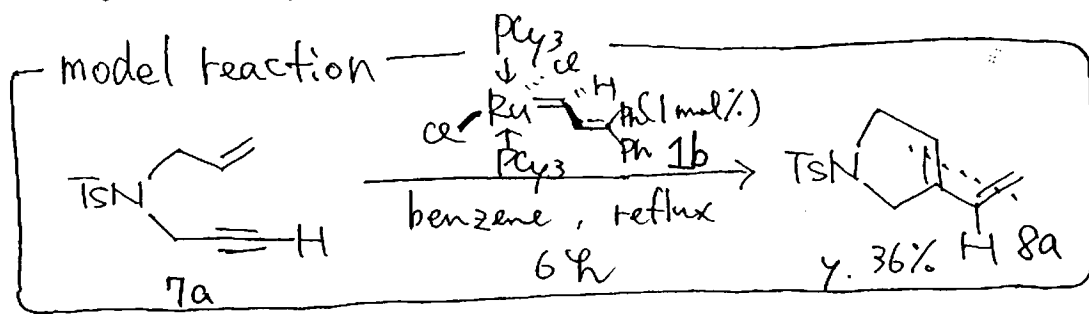 model reaction
PCy3
Cl
H
Cl Ru Ph (1 mol%)
PCy3 Ph 1b
TsN
H
7a
benzene, reflux
6 h
TsN
H 8a
y. 36%